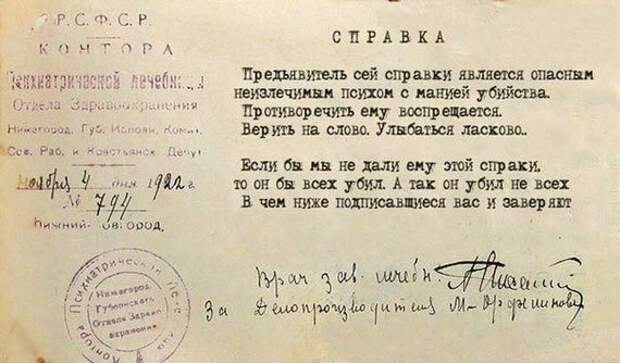 Р.С.Ф.С.Р.
КОНТОРА
Психиатрической лечебницы
Отдела Здравоохранения
Нижегород. Губ. Исполн. Комит.
Сов. Раб. и Крестьянск. Депут.
Ноября 4 дня 1922 г.
№ 794
Нижний-Новгород.
СПРАВКА
Предьявитель сей справки является опасным
неизлечимым психом с манией убийства.
Противоречить ему воспрещается.
Верить на слово. Улыбаться ласково..
Если бы мы не дали ему этой спраки,
то он бы всех убил. А так он убил не всех
В чем ниже подписавшиеся вас и заверяют
Врач зав. лечебн.
За Делопроизводителя
Психиатрической Контора
Нижегород.
Губернского
Отдела Здраво-
охранения